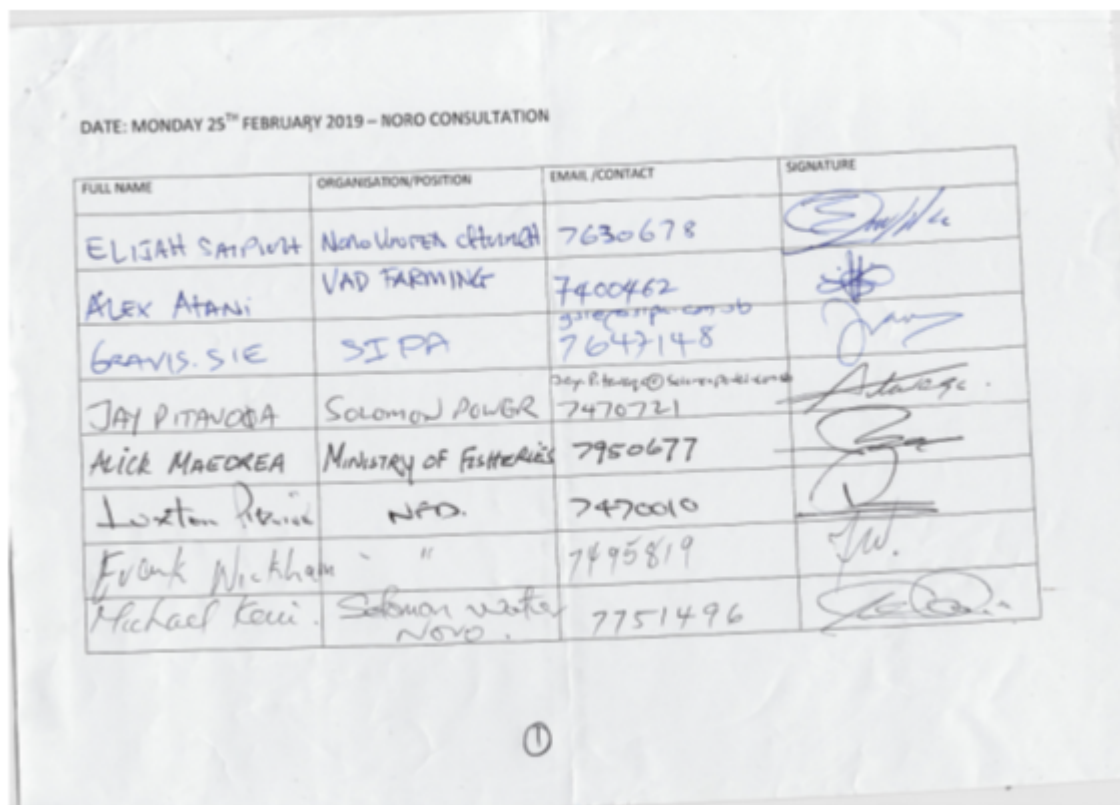 DATE: MONDAY 25TH FEBRUARY 2019 – NORO CONSULTATION
FULL NAME ORGANISATION/POSITION EMAIL /CONTACT SIGNATURE
ELIJAH NORO UNITED CHURCH 7630678
ALEX ATANI VAD FARMING 7400462
GRAVIS. SIE SIPA 7647148
JAY SOLOMON POWER 7470721
ALICK MAEOREA MINISTRY OF FISHERIES 7950677
Luxton NFD. 7470010
Frank Wickham " 7495819
Michael Solomon Water
Noro. 7751496
1